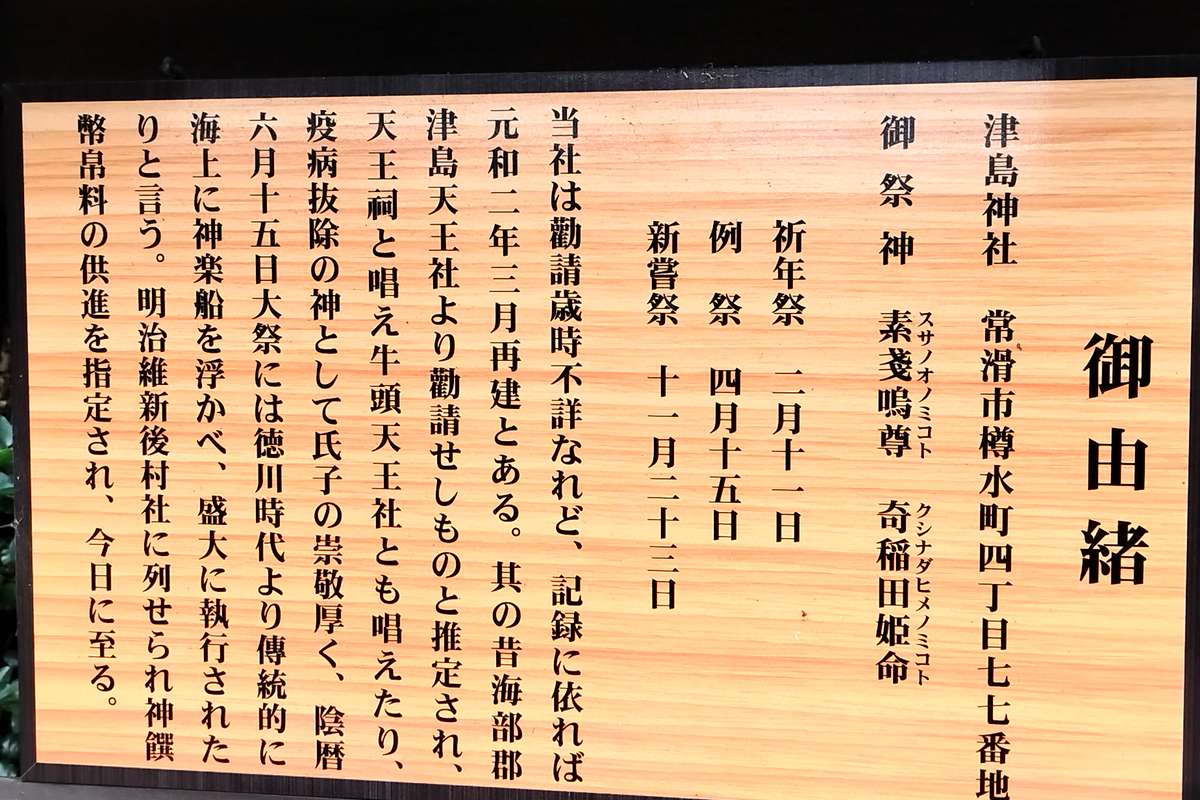 御由緒
津島神社 常滑市樽水町四丁目七七番地
御祭神 素戔嗚尊 奇稲田姫命
スサノオノミコト クシナダヒメノミコト
祈年祭 二月十一日
例祭 四月十五日
新嘗祭 十一月二十三日
当社は勸請歳時不詳なれど、記録に依れば
元和二年三月再建とある。其の昔海部郡
津島天王社より勸請せしものと推定され、
天王祠と唱え牛頭天王社とも唱えたり、
疫病抜除の神として氏子の崇敬厚く、陰暦
六月十五日大祭には徳川時代より傳統的に
海上に神楽船を浮かべ、盛大に執行された
りと言う。明治維新後村社に列せられ神饌
幣帛料の供進を指定され、今日に至る。